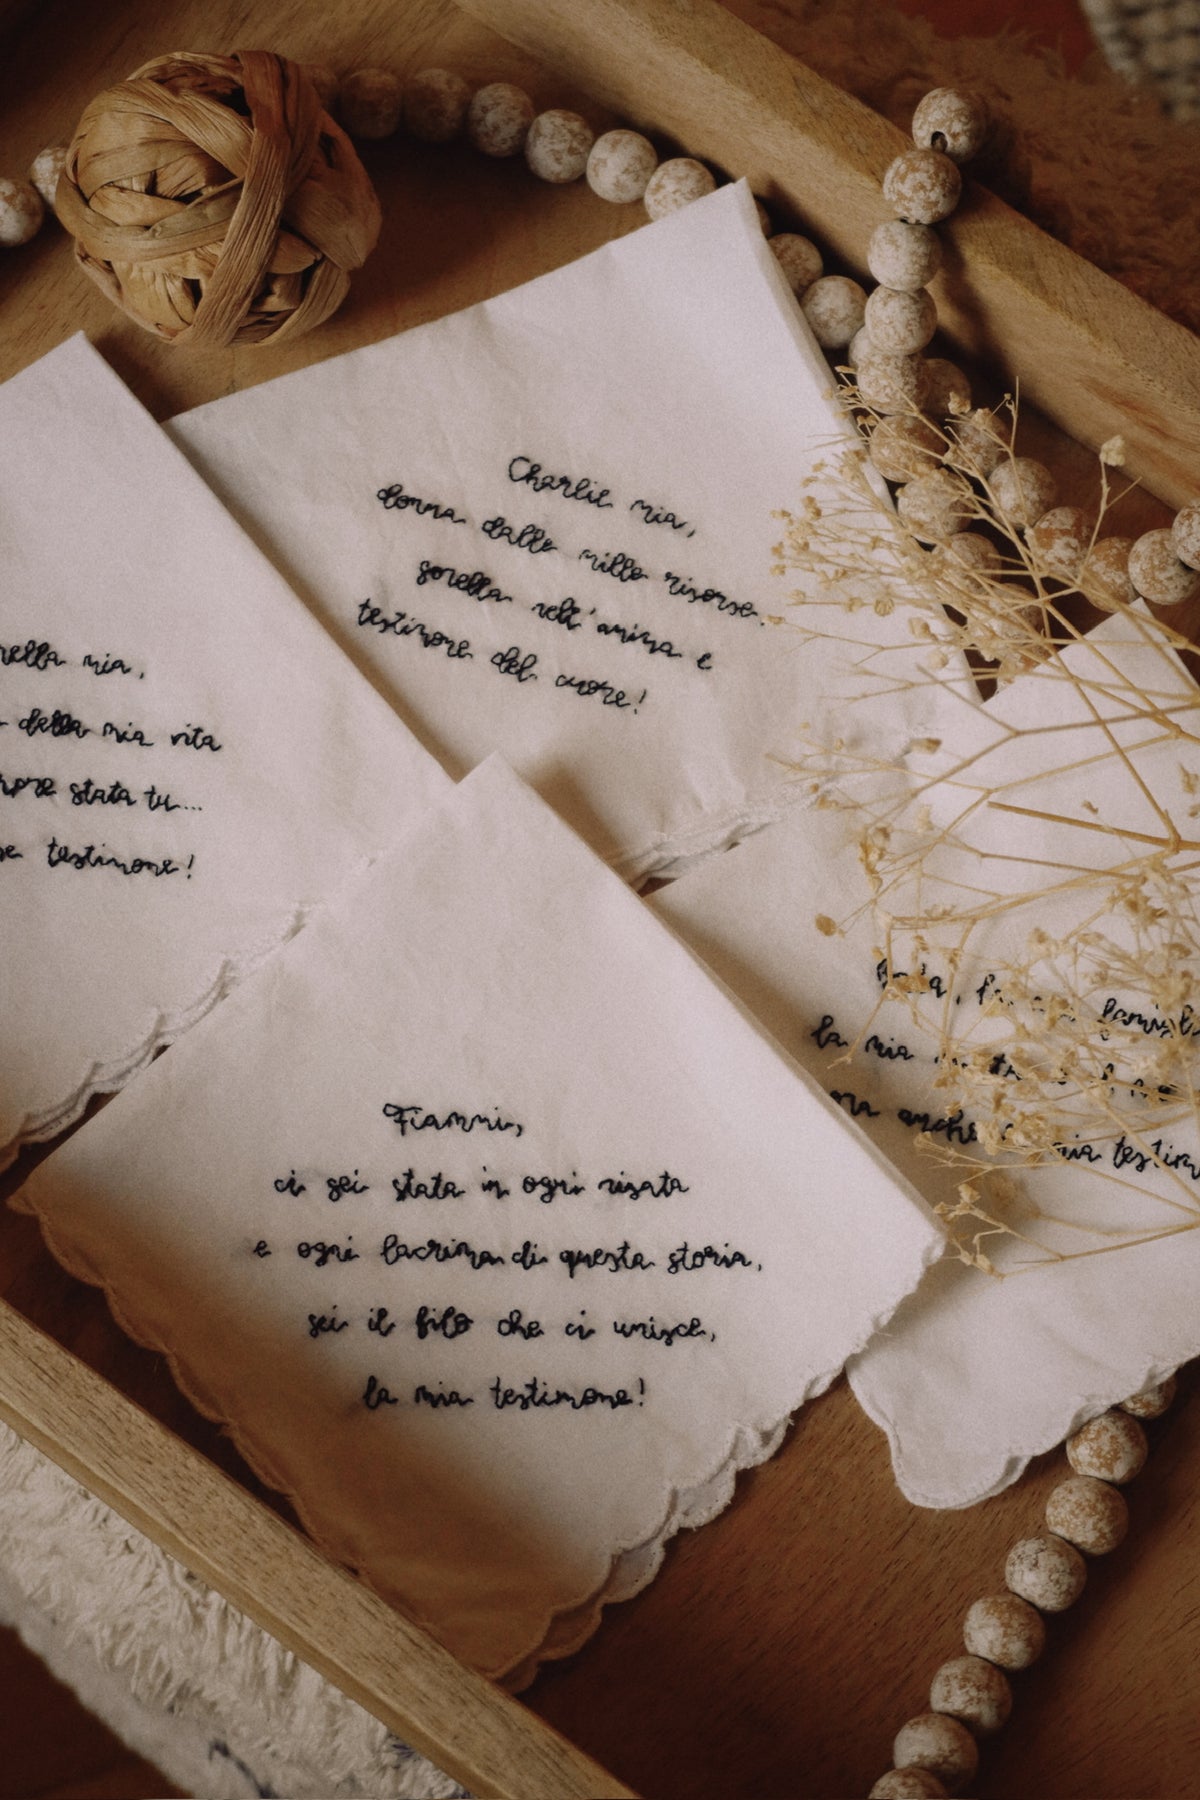 Charlie mia,
donna dalle mille risorse.
sorella dell'anima e
testimone del cuore!
mia,
della mia vita
stata tu...
testimone!
Fianni,
ci sei stata in ogni risata
e ogni lacrima di questa storia,
sei il filo che ci unisce,
la mia testimone!
la mia
anche mia